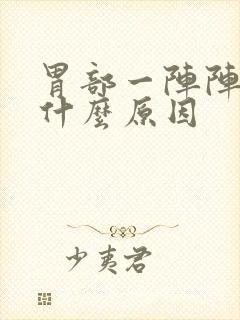 胃部一陣陣
什麼原因
少夷君